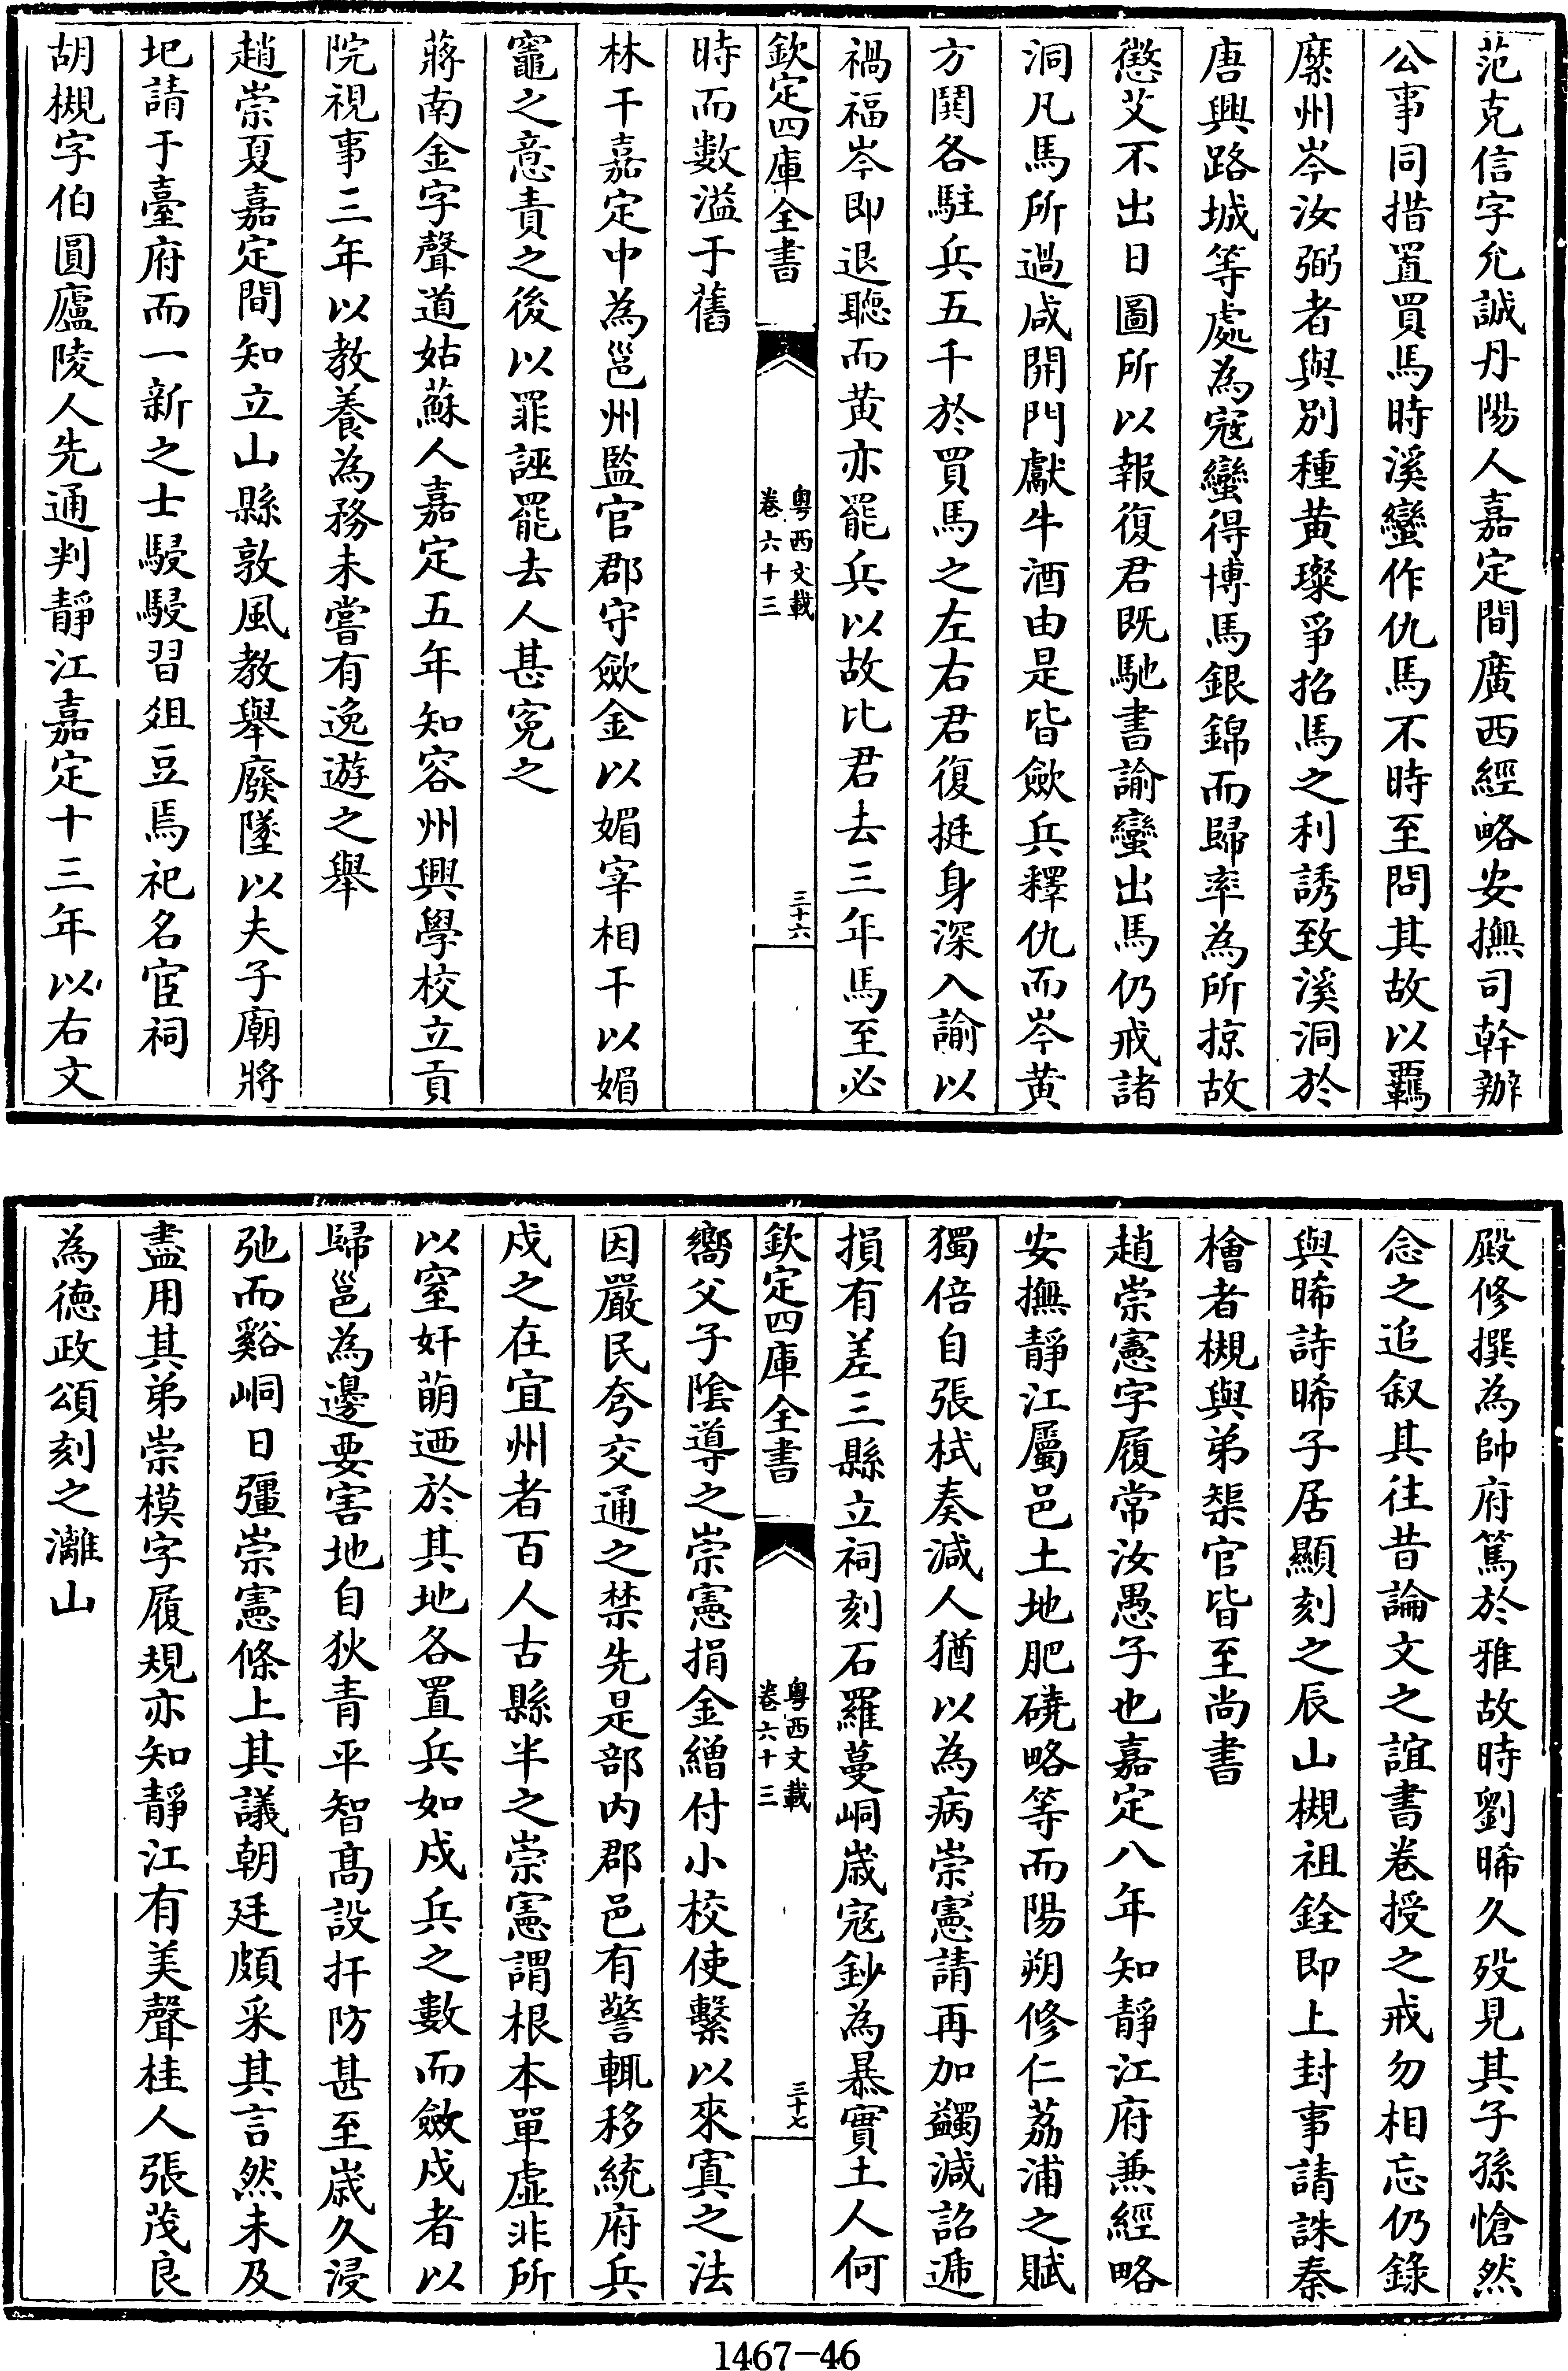 范克信字允誠丹陽人嘉定間廣西經略安撫司幹辦
公事同措置買馬時溪蠻作仇馬不時至問其故以覊
縻州岑汝弼者與別種黄璨爭招馬之利誘致溪洞於
唐興路城等處為寇蠻得博馬銀錦而歸率為所掠故
懲艾不出日圖所以報復君既馳書諭蠻出馬仍戒諸
洞凡馬所過咸開門獻牛酒由是皆歛兵釋仇而岑黄
方鬨各駐兵五千於買馬之左右君復挺身深入諭以
禍福岑即退聽而黄亦罷兵以故比君去三年馬至必
欽定四庫全書
粤西文載
卷六十三
三十六
時而數溢于舊
林干嘉定中為邕州監官郡守歛金以媚宰相干以媚
竈之意責之後以罪誣罷去人甚寃之
蔣南金字聲道姑蘇人嘉定五年知容州興學校立貢
院視事三年以教養為務未嘗有逸遊之舉
趙崇夏嘉定間知立山縣敦風教舉廢墜以夫子廟將
圯請于臺府而一新之士駸駸習俎豆焉祀名宦祠
胡槻字伯圓廬陵人先通判靜江嘉定十三年以右文
殿修撰為帥府篤於雅故時劉晞久殁見其子孫愴然
念之追叙其往昔論文之誼書卷授之戒勿相忘仍錄
與晞詩晞子居顯刻之辰山槻祖銓即上封事請誅秦
檜者槻與弟榘官皆至尚書
趙崇憲字履常汝愚子也嘉定八年知靜江府兼經略
安撫靜江屬邑土地肥磽略等而陽朔修仁荔浦之賦
獨倍自張栻奏減人猶以為病崇憲請再加蠲減詔遞
損有差三縣立祠刻石羅蔓峒歳寇鈔為暴實土人何
欽定四庫全書
粤西文載
卷六十三
三十七
嚮父子陰導之崇憲捐金繒付小校使繫以來寘之法
因嚴民夸交通之禁先是部内郡邑有警輒移統府兵
戍之在宜州者百人古縣半之崇憲謂根本單虛非所
以窒奸萌迺於其地各置兵如戍兵之數而歛戍者以
歸邕為邊要害地自狄青平智髙設扞防甚至歳久浸
弛而谿峒日彊崇憲條上其議朝廷頗采其言然未及
盡用其弟崇模字履規亦知靜江有美聲桂人張茂良
為徳政頌刻之灕山
1467-46